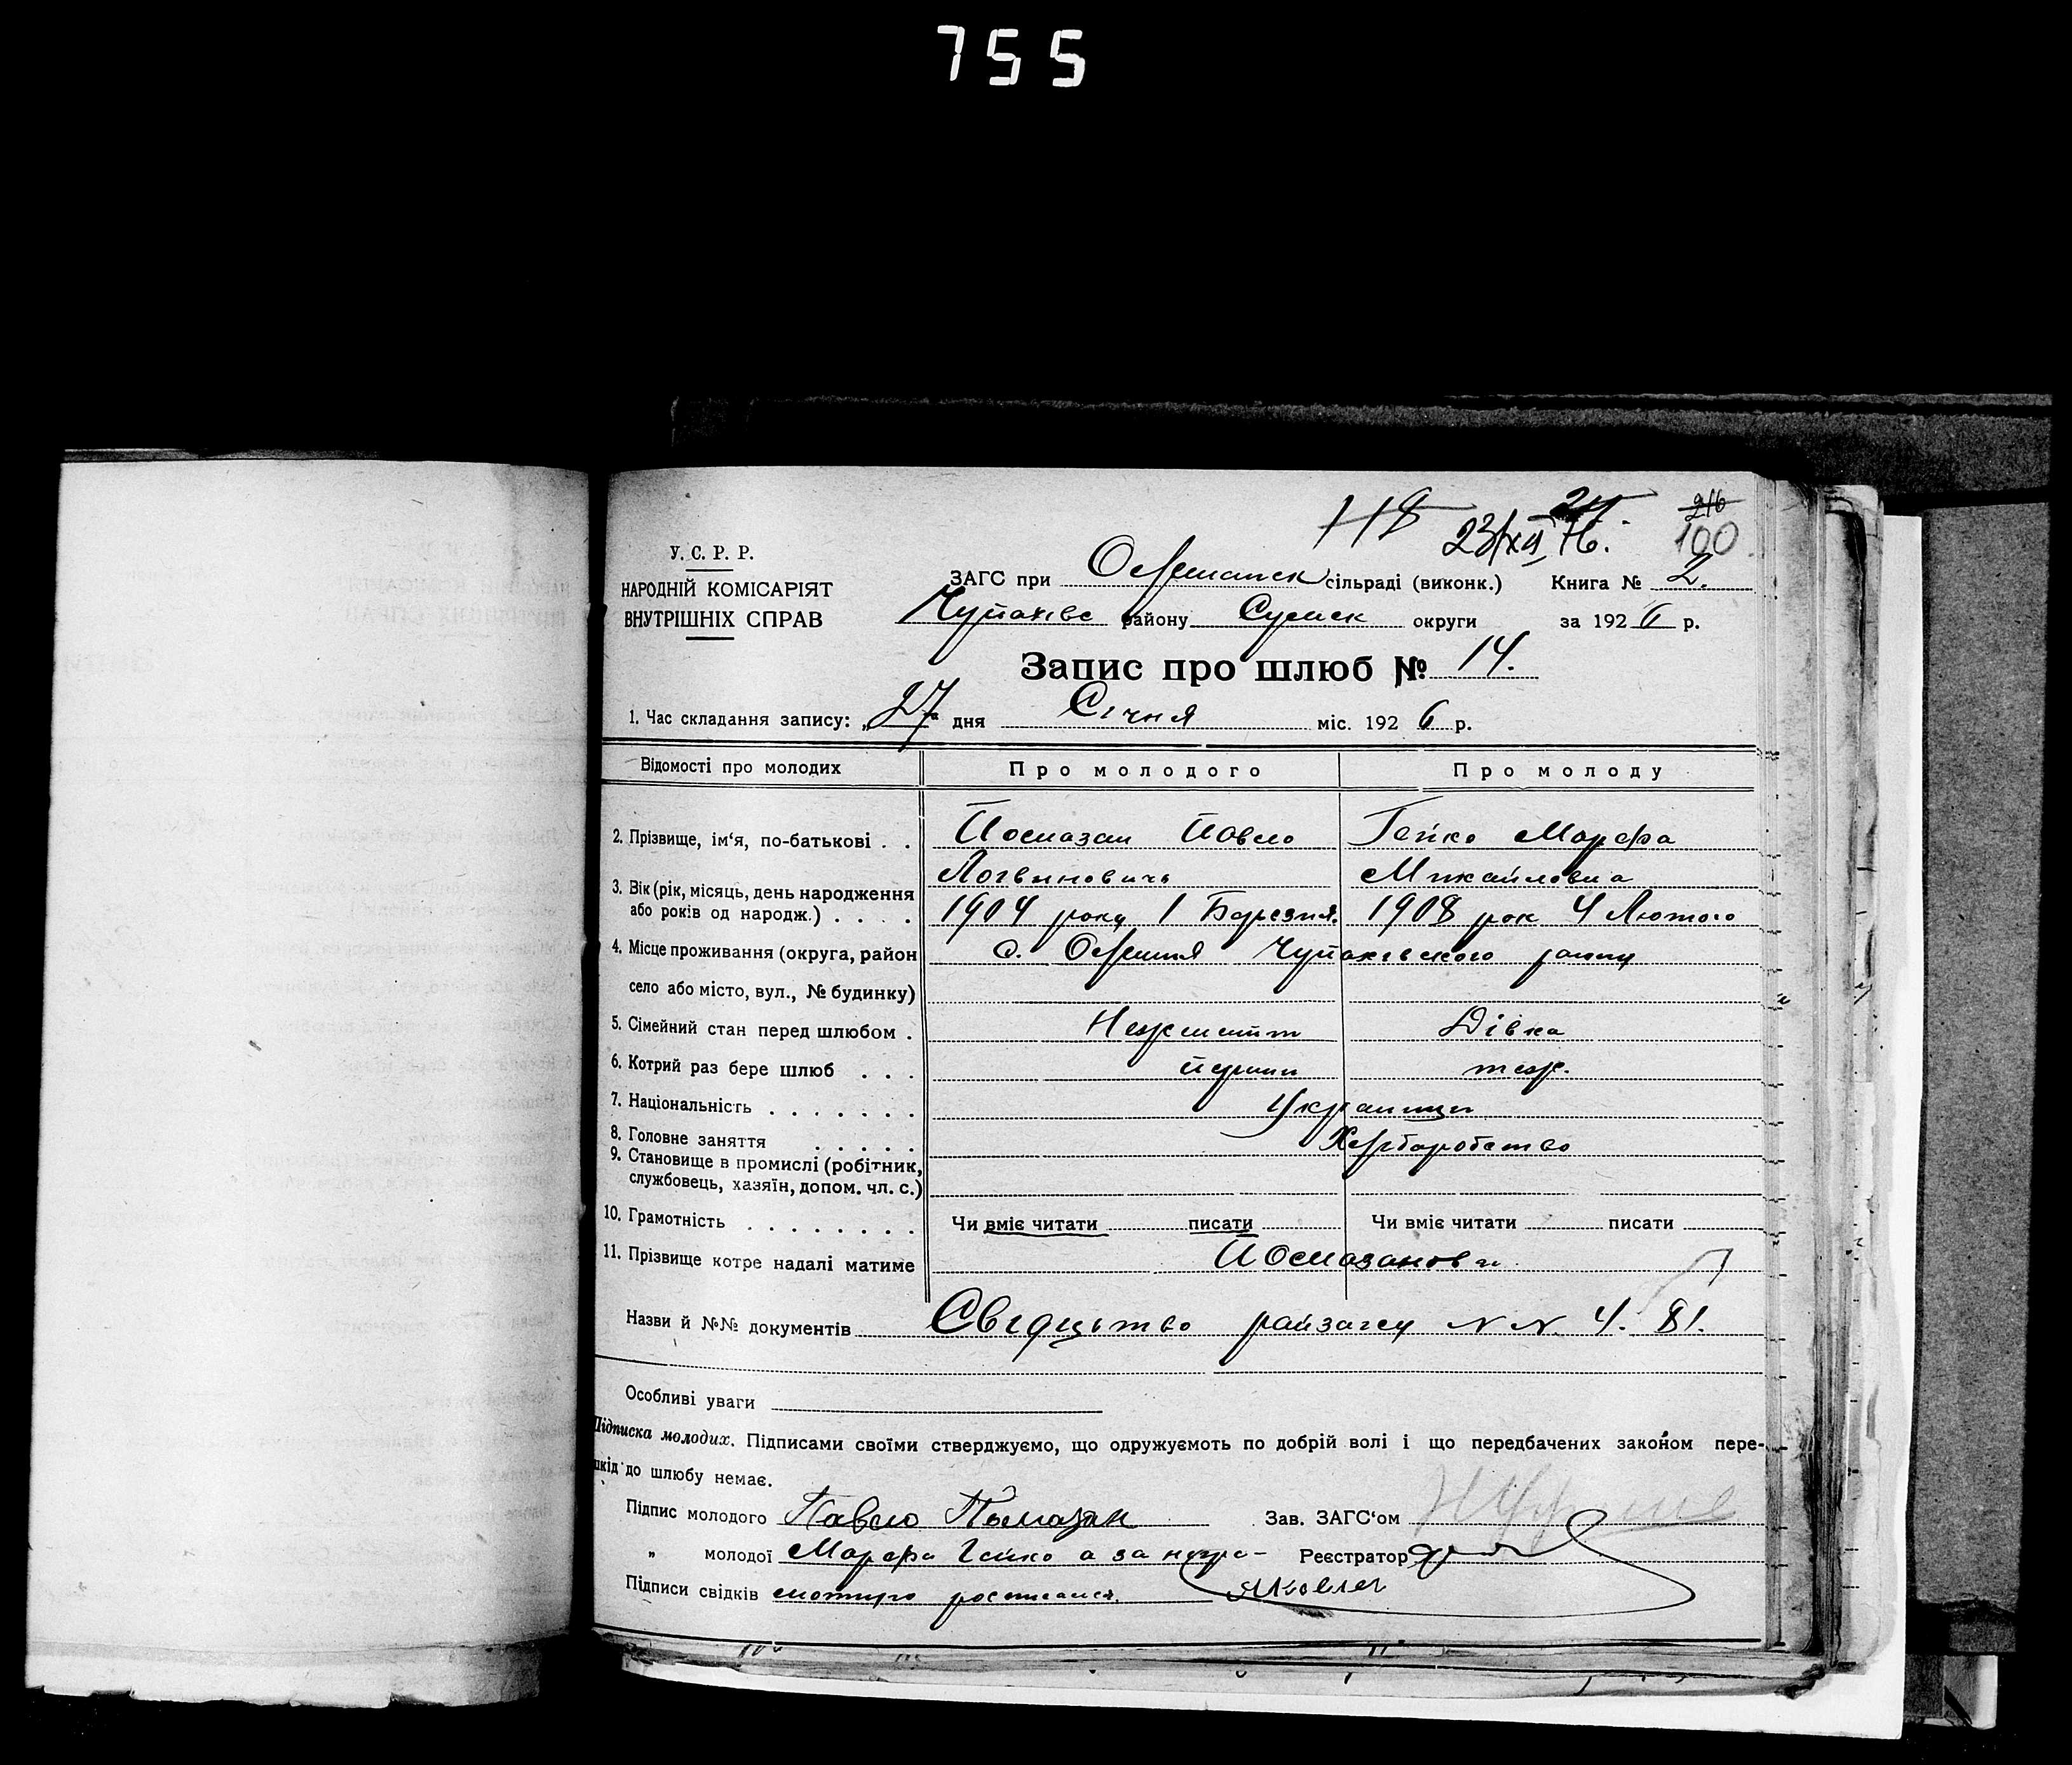 755
118 24.
216
23/XII 76. 100
У. С. Р. Р.
НАРОДНІЙ КОМІСАРІЯТ
ВНУТРІШНІХ СПРАВ
ЗАГС при сільраді (виконк.) Книга № 2.
Чупахівс району Сумск округи за 1926 р.
Запис про шлюб № 14.
1. Час складання запису: „27“ дня Січня міс. 1926 р.
Відомості про молодих Про молодого Про молоду
2. Прізвище, ім‘я, по-батькові . . Посмазан Павло Гейко Марфа
Логвинович Михайловна
3. Вік (рік, місяць, день народження
або років од народж.) . . . . 1904 року 1 Березня. 1908 рок 4 Лютого
4. Місце проживання (округа, район с. Чупахівського раину
село або місто, вул., № будинку)
5. Сімейний стан перед шлюбом . Дівка
6. Котрий раз бере шлюб . . . перший теж.
7. Національність . . . . . . . Українци
8. Головне заняття . . . . . Хліборобство
9. Становище в промислі (робітник,
службовець, хазяїн, допом. чл. с.)
10. Грамотність . . . . . . . . Чи вміє читати писати Чи вміє читати писати
11. Прізвище котре надалі матиме Посмазанови
Назви й №№ документів Свідоцтво райзагсу NN. 4. 81.
Особливі уваги
Підписка молодих. Підписами своїми стверджуємо, що одружуємоть по добрій волі і що передбачених законом пере-
шкід до шлюбу немає.
Підпис молодого Павло Зав. ЗАГС‘ом
„ молодої Марфа Гейко а за негра- Реєстратор
Підписи свідків мотную росписался.